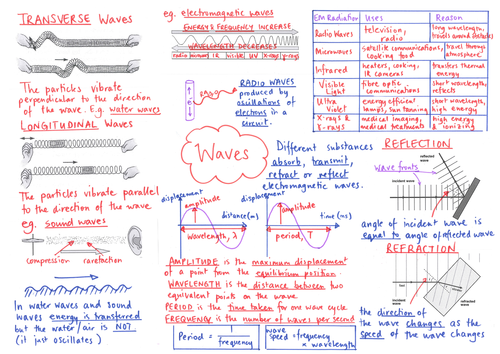 TRANSVERSE Waves
The particles vibrate
perpendicular to the direction
of the wave. E.g. water waves
LONGITUDINAL Waves
The particles vibrate parallel
to the direction of the wave
eg. sound waves
compression
rarefaction
In water waves and sound
waves energy is transferred
but the water/air is NOT
(it just oscillates)
eg. electromagnetic waves
ENERGY & FREQUENCY INCREASE
WAVELENGTH DECREASES
radio microwaves IR visible UV X-rays γ-rays
RADIO
RADIO WAVES
produced by
oscillations of
electrons in a
circuit.
Waves
Different substances
absorb, transmit,
refract or reflect
electromagnetic waves.
displacement
amplitude
distance(m)
wavelength, λ
displacement
amplitude
time (ms)
period, T
AMPLITUDE is the maximum displacement
of a point from the equilibrium position.
WAVELENGTH is the distance between two
equivalent points on the wave.
PERIOD is the time taken for one wave cycle
FREQUENCY is the number of waves per second
Period = 1
frequency
wave
speed = frequency
× wavelength
EM Radiation Uses Reason
Radio Waves television, radio long wavelength,
Microwaves satellite communications, cooking food travel through atmosphere
Infrared heaters, cooking, IR cameras transfers thermal energy
Visible Light fibre optic communications short wavelength, reflects
Ultra Violet energy efficient lamps, sun tanning short wavelength, high energy
X-rays & γ-rays medical imaging, medical treatments high energy & ionizing
REFLECTION
Wave fronts
incident wave
reflected wave
angle of incident wave is
equal to angle of reflected wave
REFRACTION
incident wave
reflected wave
the direction of
the wave changes as the
speed of the wave changes